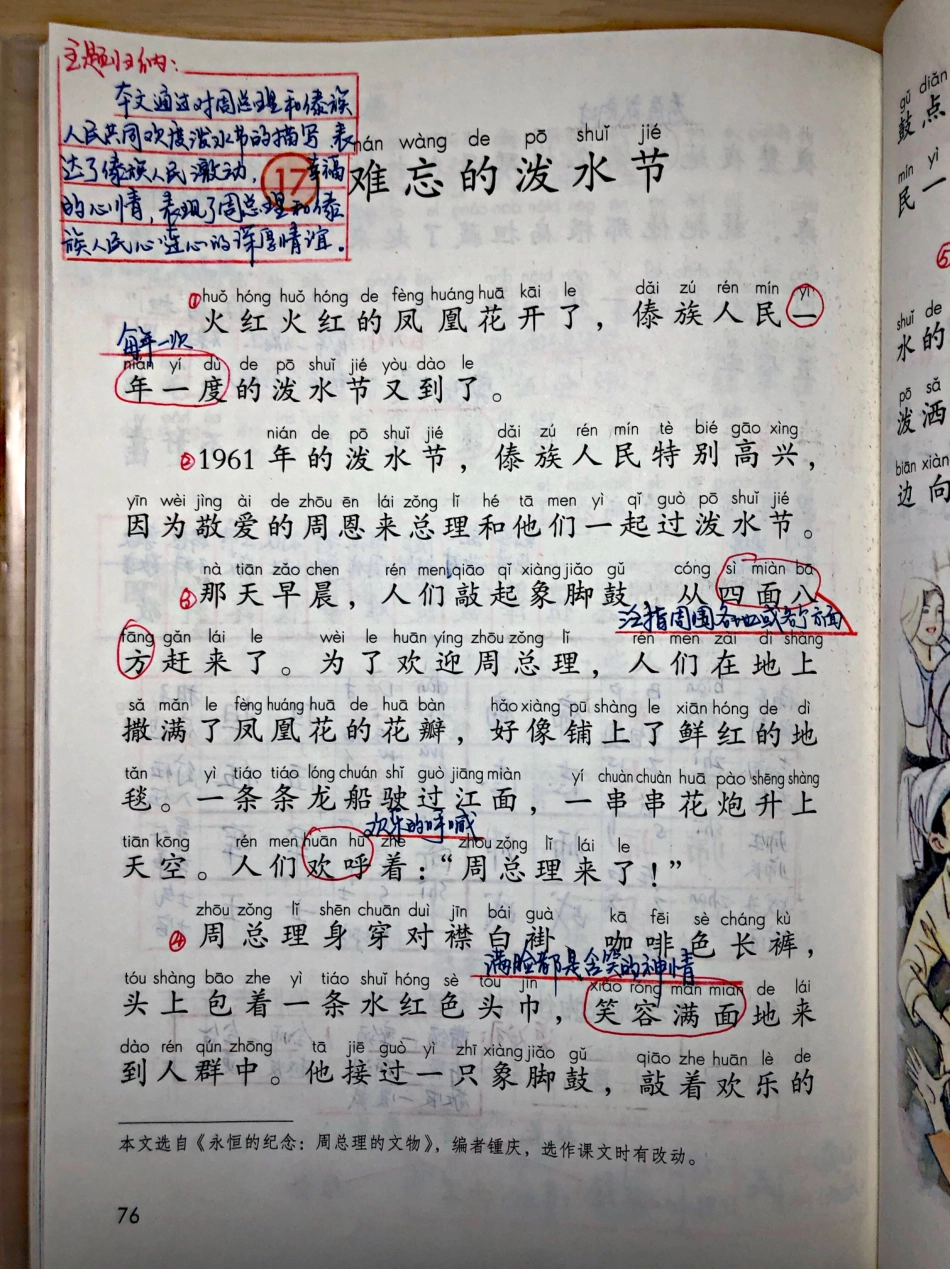 主题归纳：
本文通过对周总理和傣族
人民共同欢度泼水节的描写，表
达了傣族人民激动、幸福
的心情，表现了周总理和傣
族人民心连心的深厚情谊。
nán wàng de pō shuǐ jié
17 难忘的泼水节
huǒ hóng huǒ hóng de fèng huáng huā kāi le dǎi zú rén mín yì
①火红火红的凤凰花开了，傣族人民一
每年一次
nián yí dù de pō shuǐ jié yòu dào le
年一度的泼水节又到了。
nián de pō shuǐ jié dǎi zú rén mín tè bié gāo xìng
②1961年的泼水节，傣族人民特别高兴，
yīn wèi jìng ài de zhōu ēn lái zǒng lǐ hé tā men yì qǐ guò pō shuǐ jié
因为敬爱的周恩来总理和他们一起过泼水节。
nà tiān zǎo chen rén men qiāo qǐ xiàng jiǎo gǔ cóng sì miàn bā
③那天早晨，人们敲起象脚鼓，从四面八
泛指周围各地或各个方面
fāng gǎn lái le wèi le huān yíng zhōu zǒng lǐ rén men zài dì shàng
方赶来了。为了欢迎周总理，人们在地上
sǎ mǎn le fèng huáng huā de huā bàn hǎo xiàng pū shàng le xiān hóng de dì
撒满了凤凰花的花瓣，好像铺上了鲜红的地
tǎn yì tiáo tiáo lóng chuán shǐ guò jiāng miàn yí chuàn chuàn huā pào shēng shàng
毯。一条条龙船驶过江面，一串串花炮升上
欢乐的呼喊
tiān kōng rén men huān hū zhe zhōu zǒng lǐ lái le
天空。人们欢呼着：“周总理来了！”
zhōu zǒng lǐ shēn chuān duì jīn bái guà kā fēi sè cháng kù
④周总理身穿对襟白褂，咖啡色长裤，
满脸都是含笑的神情
tóu shàng bāo zhe yì tiáo shuǐ hóng sè tóu jīn xiào róng mǎn miàn de lái
头上包着一条水红色头巾，笑容满面地来
dào rén qún zhōng tā jiē guò yì zhī xiàng jiǎo gǔ qiāo zhe huān lè de
到人群中。他接过一只象脚鼓，敲着欢乐的
本文选自《永恒的纪念：周总理的文物》，编者锺庆，选作课文时有改动。
76
gǔ diǎn
鼓点
mín yì
民一
⑤
shuǐ de
水的
pō sǎ
泼洒
biān xiàng
边向